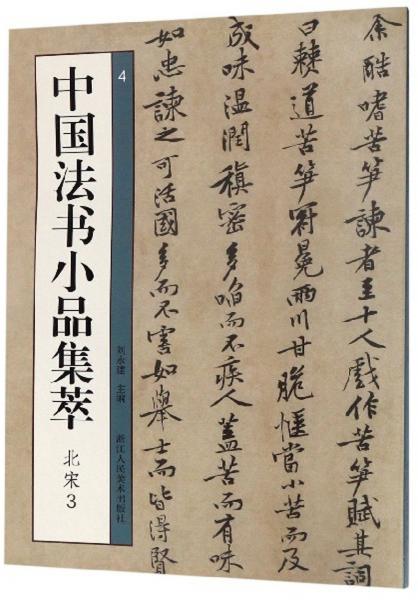 4
中国法书小品集萃
北宋3
刘永建 主编 浙江人民美术出版社
余酷嗜苦笋諫者至十人戲作苦笋賦其詞
曰僰道苦笋冠冕兩川甘脆愜當小苦而及
成味溫潤稹密多啗而不疾人蓋苦而有味
如忠諫之可活國多而不害如舉士而皆得賢